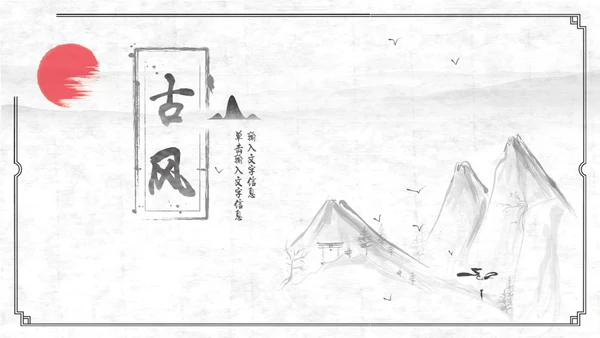 古风
输入文字信息
单击输入文字信息